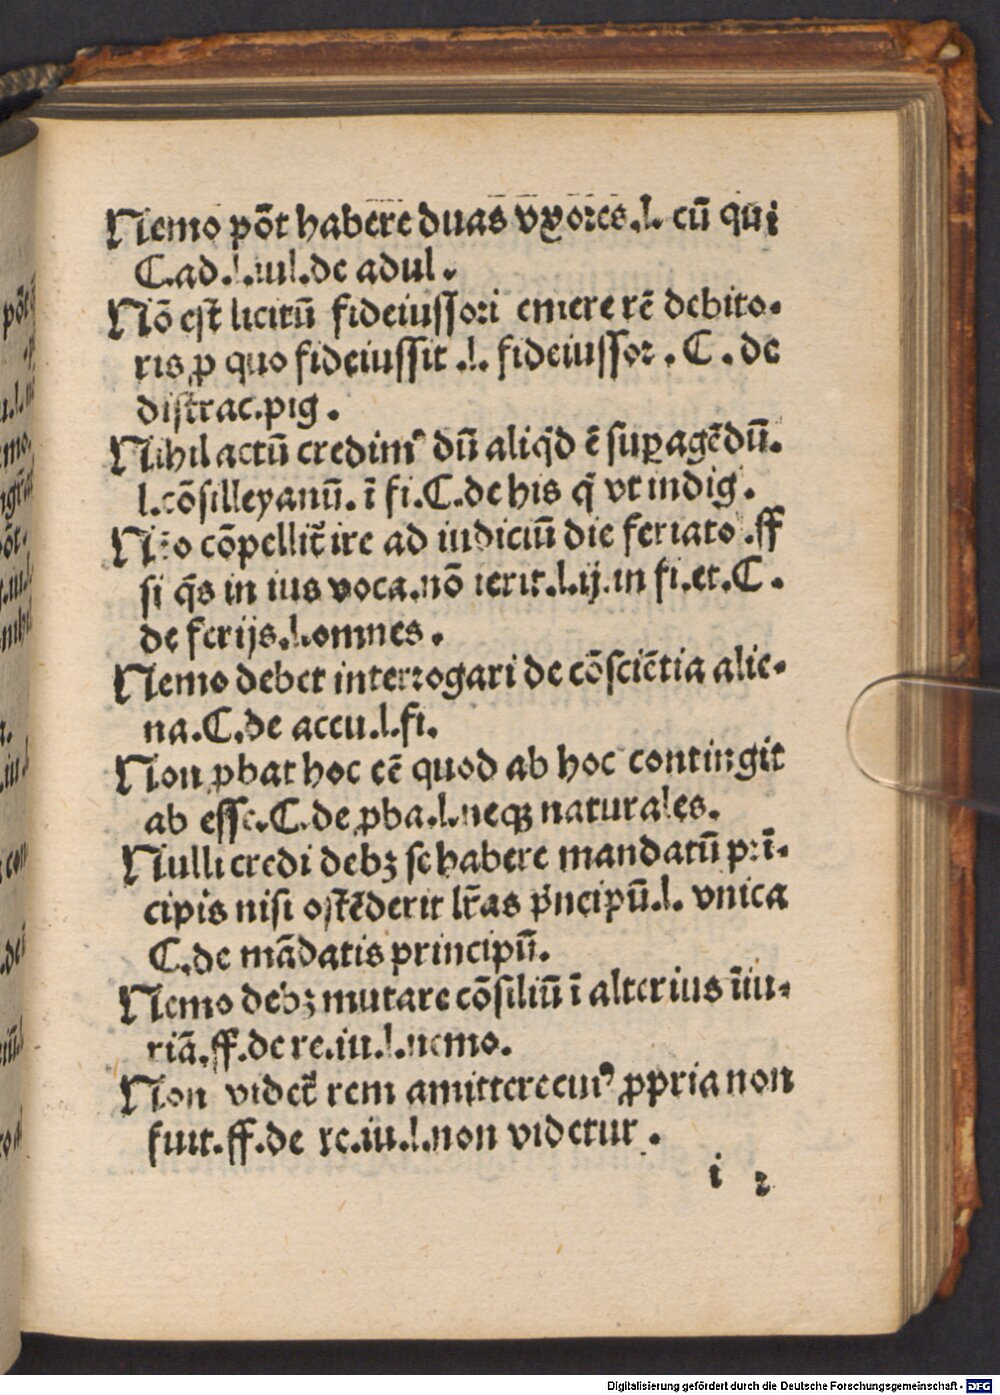 Nemo põt habere duas vxores.l. cũ qui
C.ad.l.iul.de adul.
Nõ est licitũ fideiussori emere rẽ debito-
ris ꝓ quo fideiussit .l. fideiussor. C. de
distrac.pig.
Nihil actũ credimꝰ dũ aliq̇d ẽ suꝑagẽdũ.
l.cõsilleyanũ. ĩ fi.C.de his q̃ vt indig.
cõpellit᷑ ire ad iudiciũ die feriato .ff
si q̃s in ius voca.nõ ierit.l.ij.in fi.et.C.
de ferijs.l.omnes.
Nemo debet interrogari de cõsciẽtia alie-
na.C.de accu.l.fi.
Non ꝓbat hoc eẽ quod ab hoc contingit
ab esse.C.de ꝓba.l.neqꝫ naturales.
Nulli credi debꝫ se habere mandatũ pri̅-
cipis nisi ostẽderit lr̃as pͥncipũ.l. vnica
C.de mãdatis principũ.
Nemo debꝫ mutare cõsiliũ ĩ alterius ĩiu-
riã.ff.de re.iu.l.nemo.
Non videt᷑ rem amittere cuiꝰ ꝓpria non
fuit.ff.de re.iu.l.non videtur.
i 2
Digitalisierung gefördert durch die Deutsche Forschungsgemeinschaft - DFG